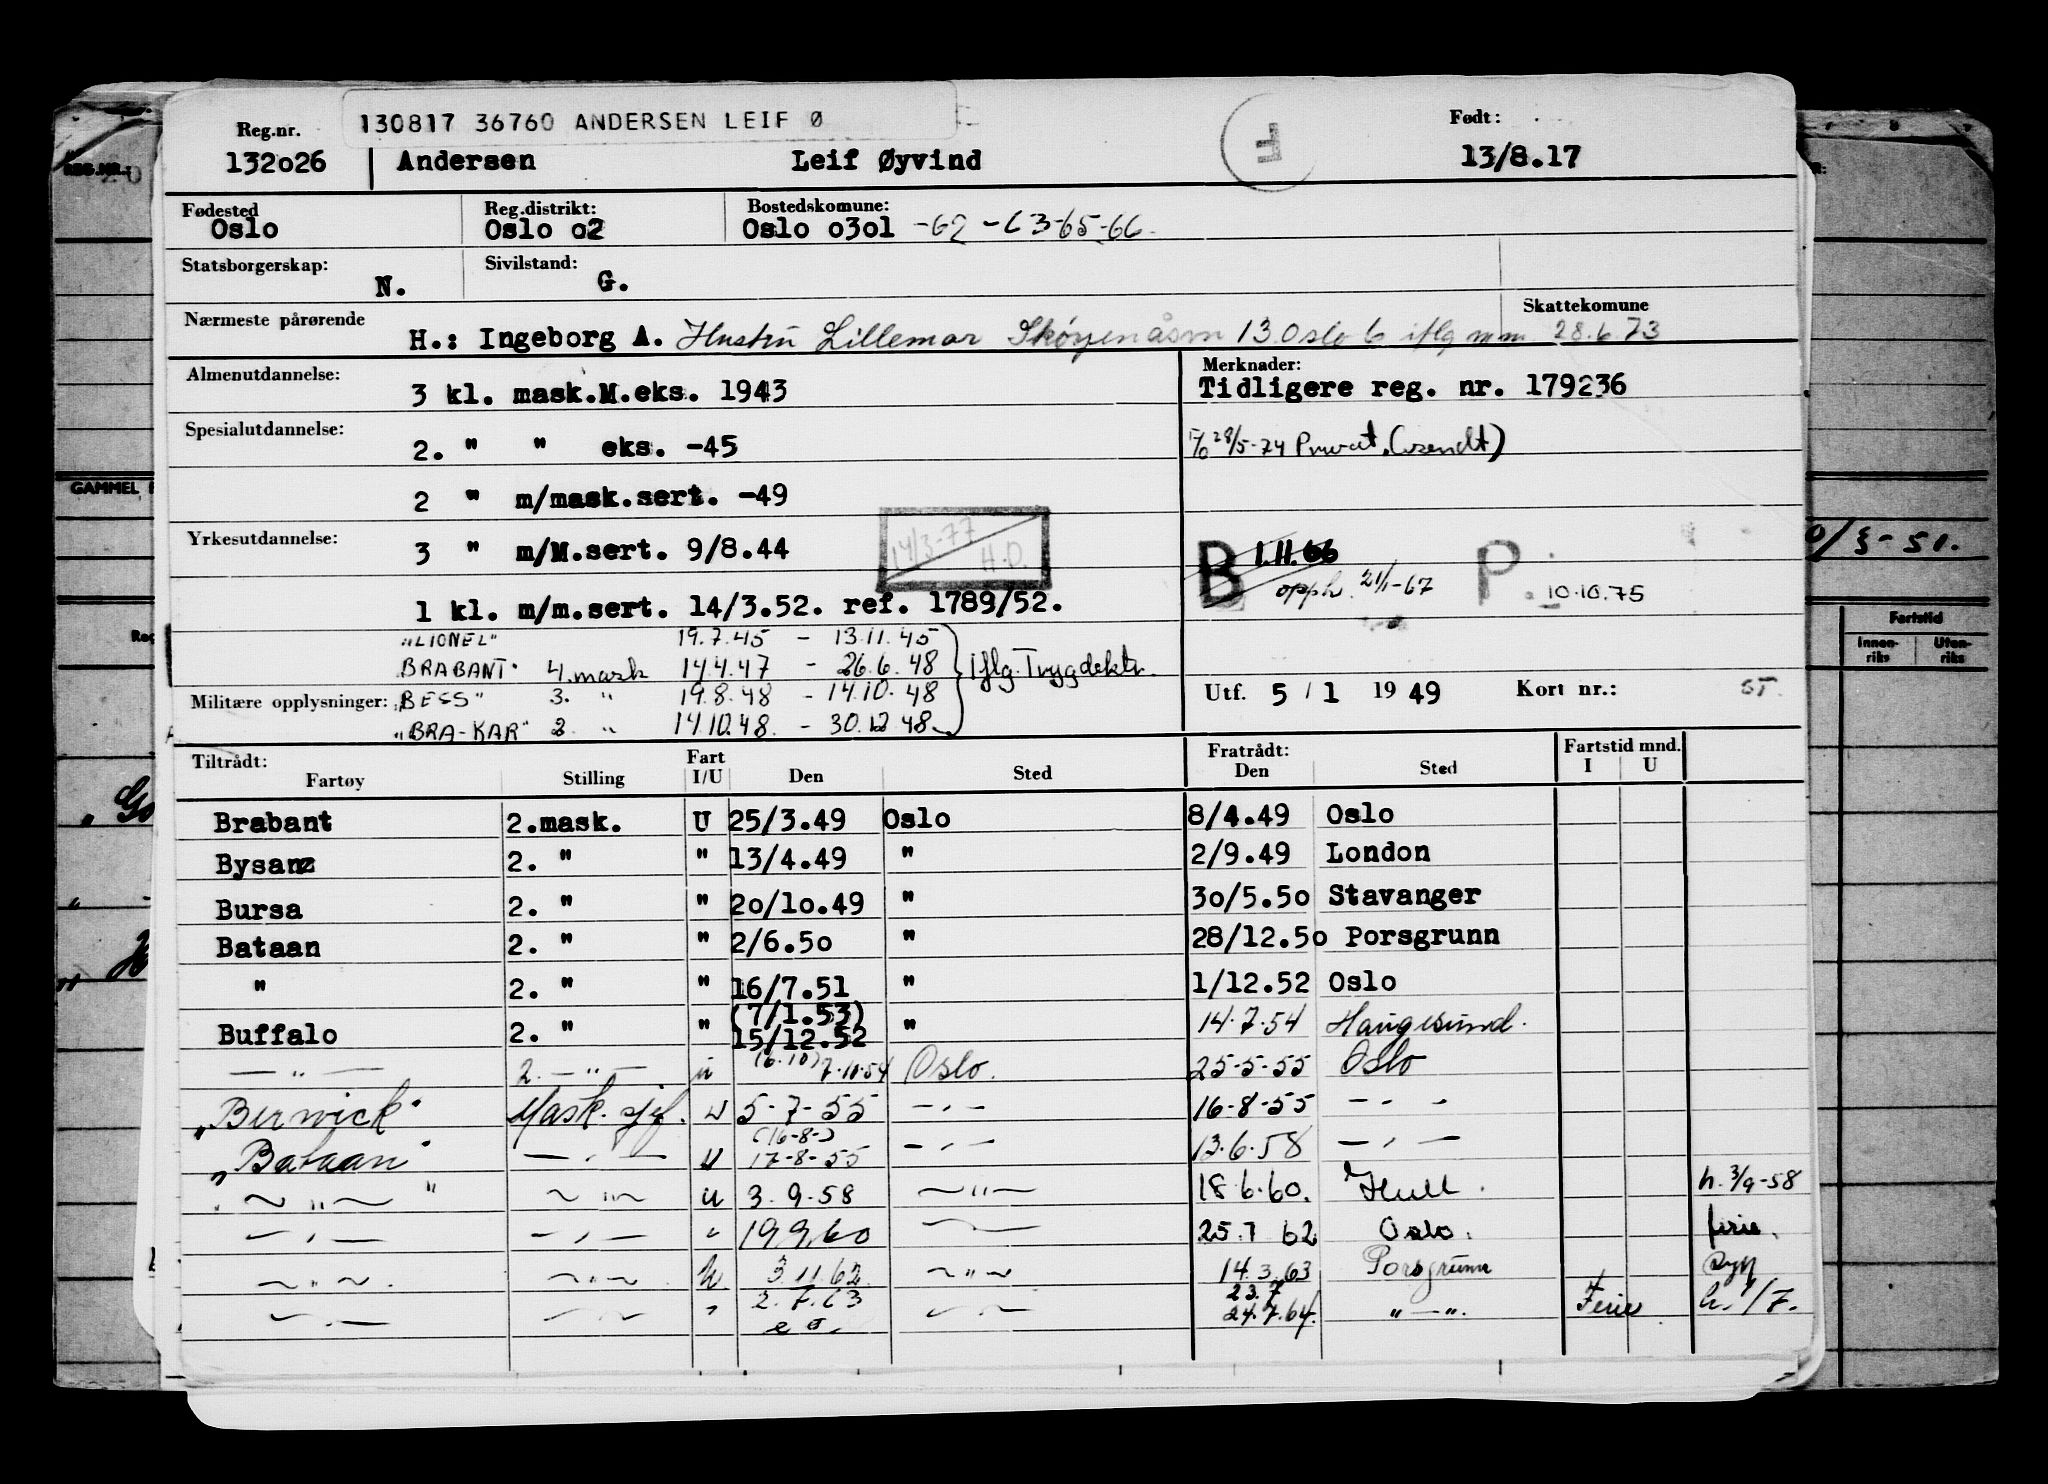 130817 36760 ANDERSEN LEIF Ø
Reg.nr. Født:
132o26 Andersen Leif Øyvind F 13/8.17
Fødested Reg.distrikt: Bostedskomune:
Oslo Oslo o2 Oslo o3ol -62 -63-65-66.
Statsborgerskap: N. Sivilstand: G.
Skattekomune
Nærmeste pårørende
H.: Ingeborg A. Hustru Lillemor Skøyenåsvn 13 Oslo 6 iflg 28.6 73
Almenutdannelse: Merknader:
3 kl. mask.M.eks. 1943 Tidligere reg. nr. 179236
Spesialutdannelse:
2. " " eks. -45 28/5-74 Privat.
2 " m/mask.sert. -49
Yrkesutdannelse:
3 " m/M.sert. 9/8.44 14/3-77 H.O. B 1.11.66 P.
opph. 21/1-67 10.10.75
1 kl. m/m.sert. 14/3.52. ref. 1789/52.
"LIONEL" 19.7.45 - 13.11.45
BRABANT" 4. mask 14.4.47 - 26.6.48 Iflg. Trygdektr.
Militære opplysninger: "BESS" 3. " 19.8.48 - 14.10.48 Utf. 5/1 1949 Kort nr.: ST.
"BRA-KAR" 2 " 14.10.48. - 30.12.48.
Tiltrådt: Fart Fratrådt: Fartstid mnd.
Fartøy Stilling I/U Den Sted Den Sted I U
Brabant 2.mask. U 25/3.49 Oslo 8/4.49 Oslo
Bysanz 2. " " 13/4.49 " 2/9.49 London
Bursa 2. " " 2o/1o.49 " 3o/5.5o Stavanger
Bataan 2. " " 2/6.5o " 28/12.5o Porsgrunn
" 2. " " 16/7.51 " 1/12.52 Oslo
(7/1.53)
Buffalo 2. " " 15/12.52 " 14.7.54 Haugesund.
— " — 2. — " — u (6.10) 7.10.54 Oslo. 25-5-55 Oslo
"Berwick" Mask. sjef. u 5-7-55 — " — 16-8-55 — " —
(16-8-)
"Bataan" — " — u 17-8-55 — " — 13.6.58 — " —
— " — " — " — u 3.9-58 — " — 18.6.60. Hull. h. 3/9-58
— " — — " — " 19.9.60 — 25.7 62 Oslo. ferie.
— " — . — " — . u 3.11.62. — " — 14.3.63 Porsgrunn syk
23.7
— " — — " — " 2.7.63 — " — 24.7.64. " — ". Ferie h. 1/7.
e o.
REG.NR.
GAMMEL
Reg
"Go
0/8-51.
Fartstid
Innen-riks Uten-riks